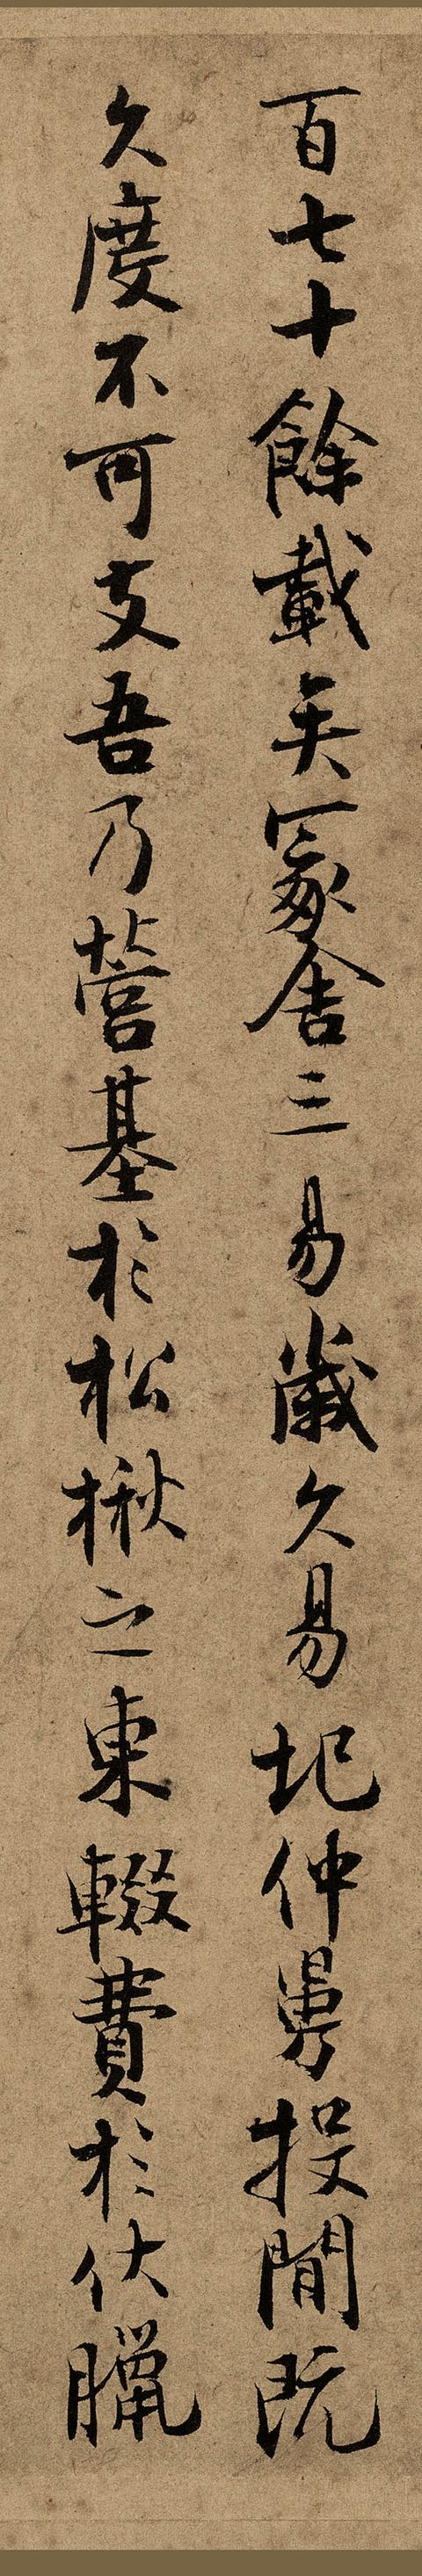 百七十餘載矣冢舍三易歲久易圮仲舅投閒既
久度不可支吾乃營基於松楸之東輟費於伏臘